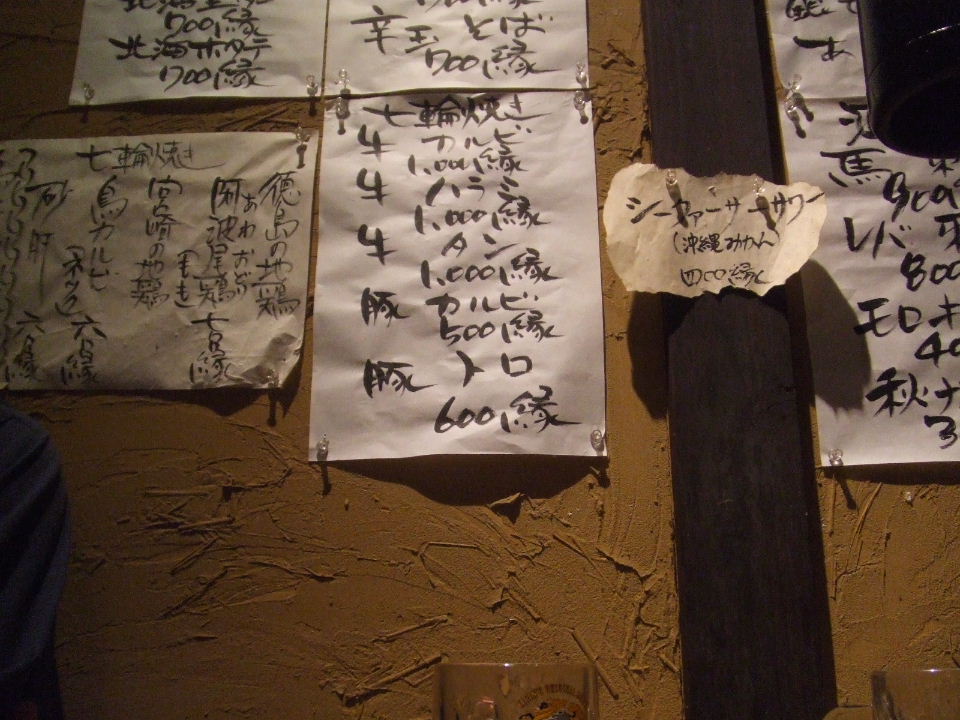 700縁
北海ホタテ
700縁
辛玉そば
700縁
七輪焼き
牛カルビ
1,000縁
牛ハラミ
1,000縁
牛タン
1,000縁
豚カルビ
500縁
豚トロ
600縁
七輪焼き
徳島の地鶏
阿波尾鶏
(あわおどり)
もも
七百縁
宮崎の地鶏
鳥カルビ
(ネック)
六百縁
砂肝
六百縁
シークァーサーサワー
(沖縄みかん)
四〇〇縁
馬
900
レバ
800
モロキ
40
秋ナ
3